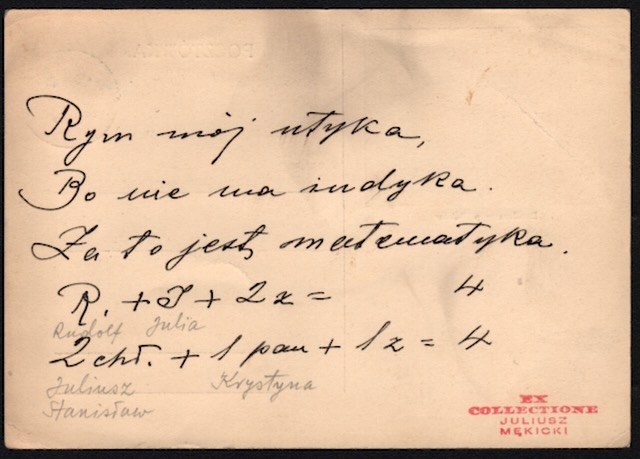 Rym mój utyka,
Bo nie ma indyka.
Za to jest matematyka.
R. + J + 2z = 4
Rudolf Julia
2 chł. + 1 pan + 1 z = 4
Juliusz Krystyna
Stanisław
EX
COLLECTIONE
JULIUSZ
MĘKICKI